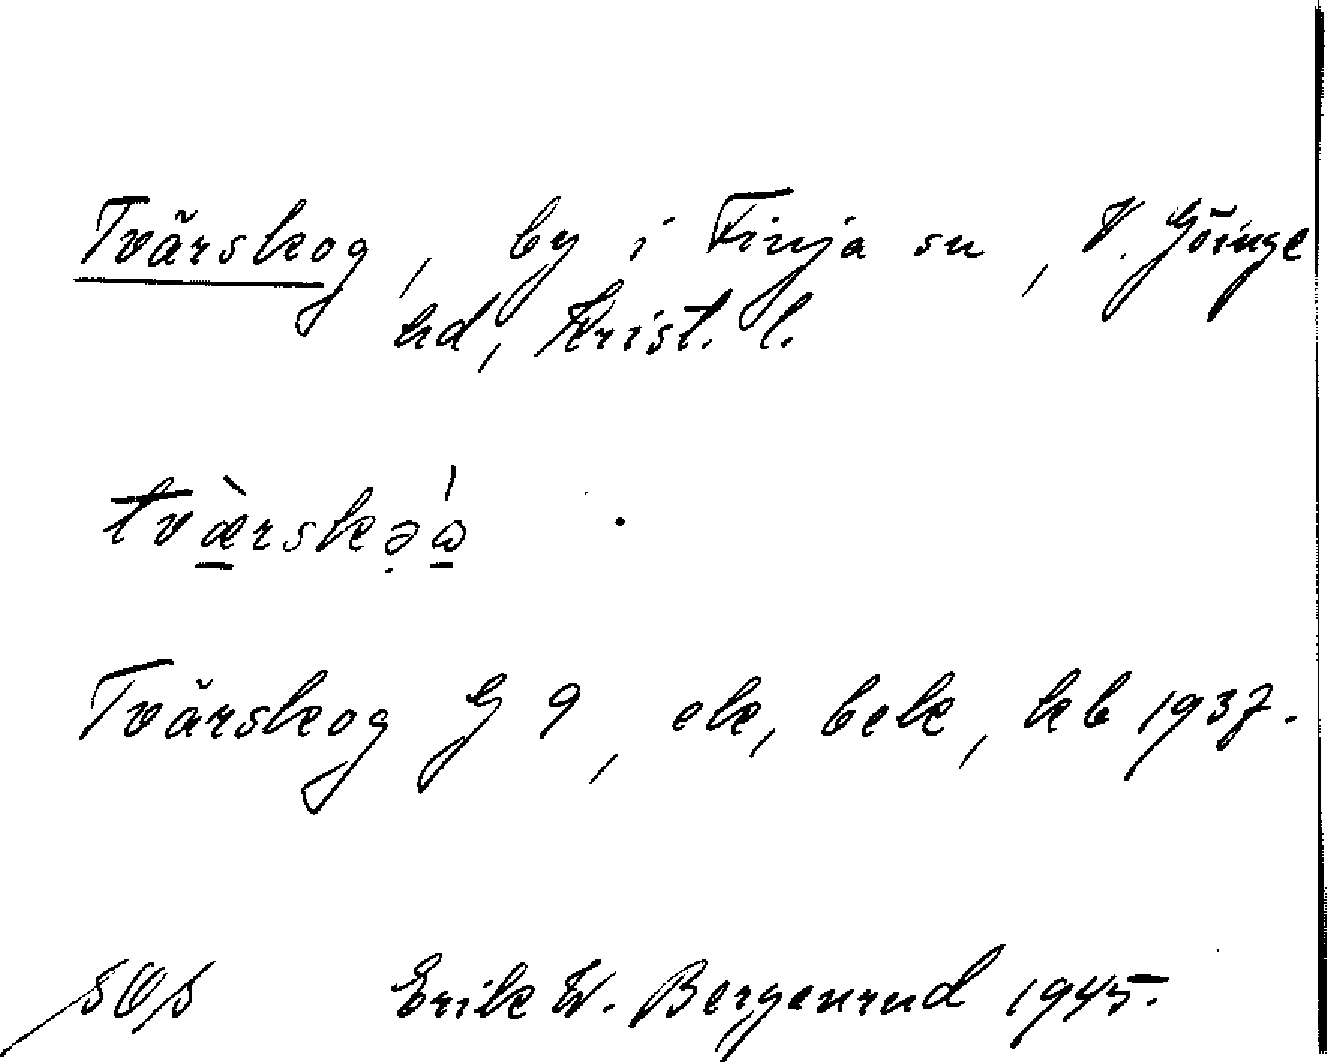 Tvärskog, by i Finja sn, V. Göinge
hd, Krist. l.
tvæ̀rskə̣ɷ́
Tvärskog G 9, ek, bek, kb 1937.
SOS Erik W. Bergenrud 1945.